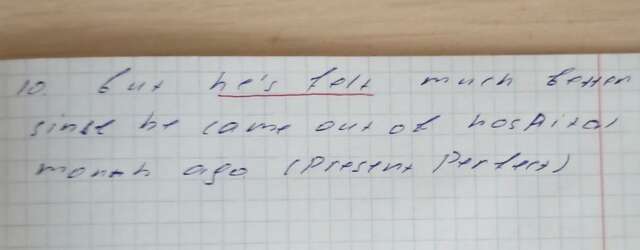 10. But he's felt much better
sinse he came out of hospital
month ago (Present Perfect)